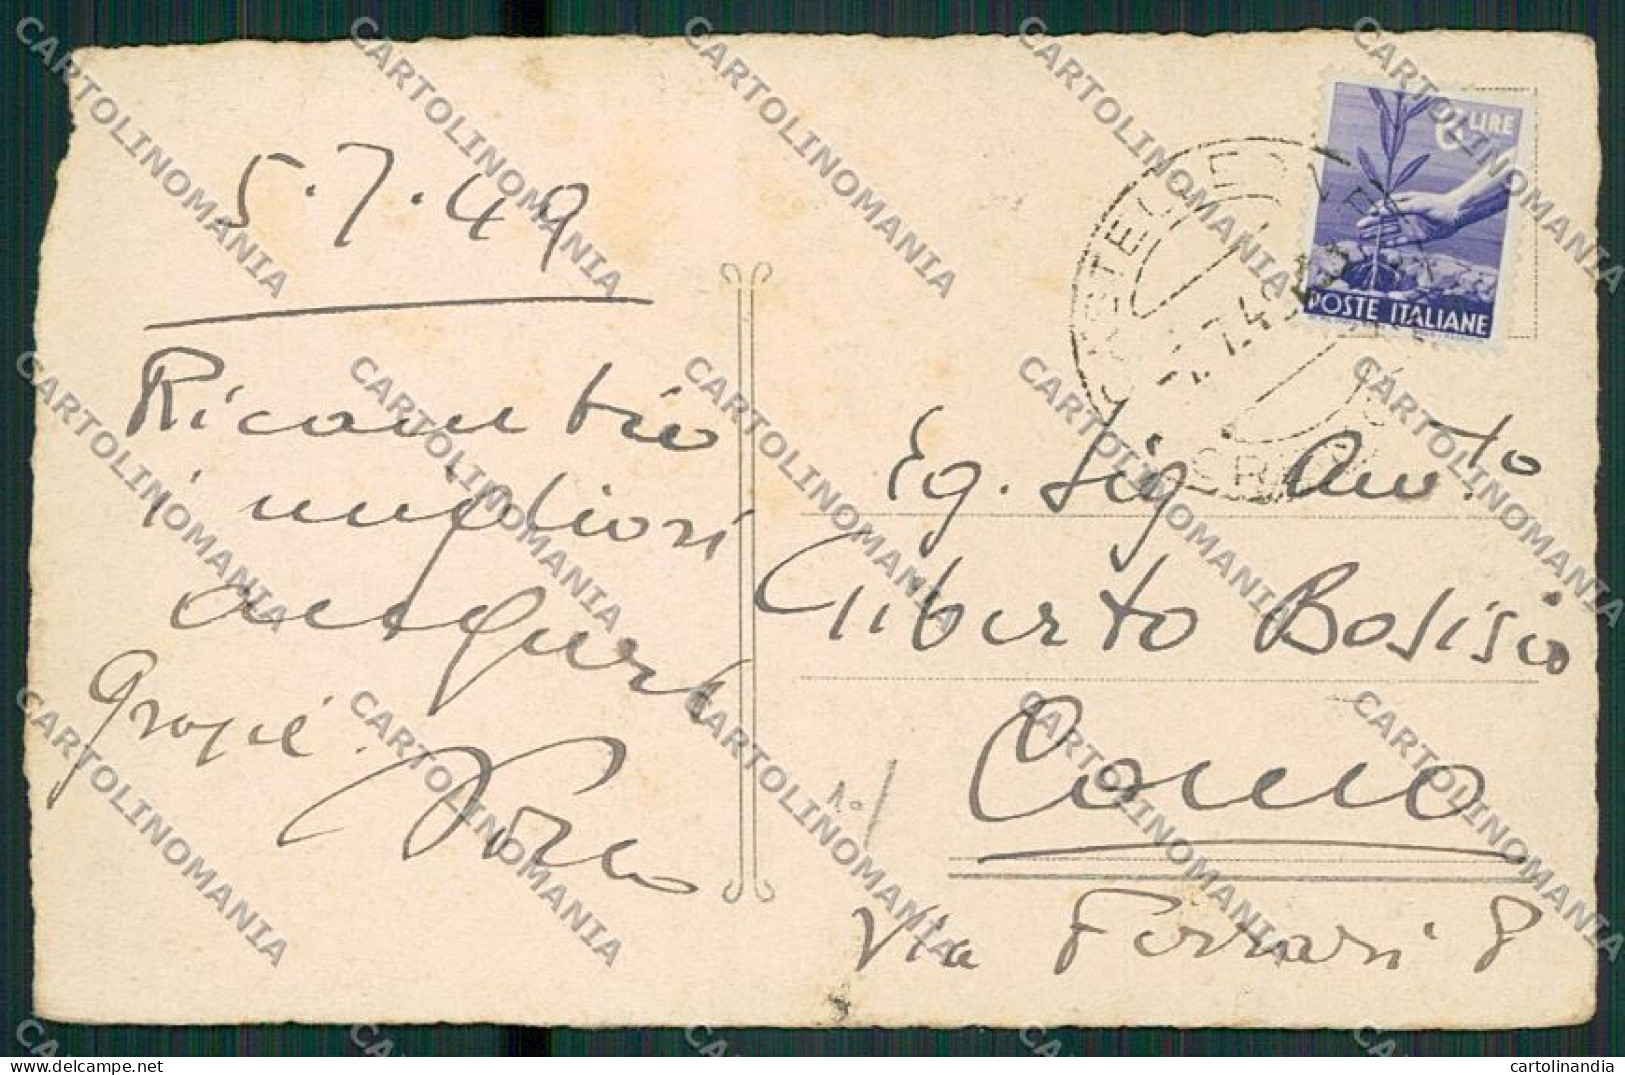 5.7.49
Ricambio
i migliori
auguri
Grazie.
6 LIRE
POSTE ITALIANE
CASTELLEONE
7.49
CR
Eg. Sig.
Giliberto Bosisio
Como
Via Ferrari 8
CARTOLINOMANIA
cartolinandia